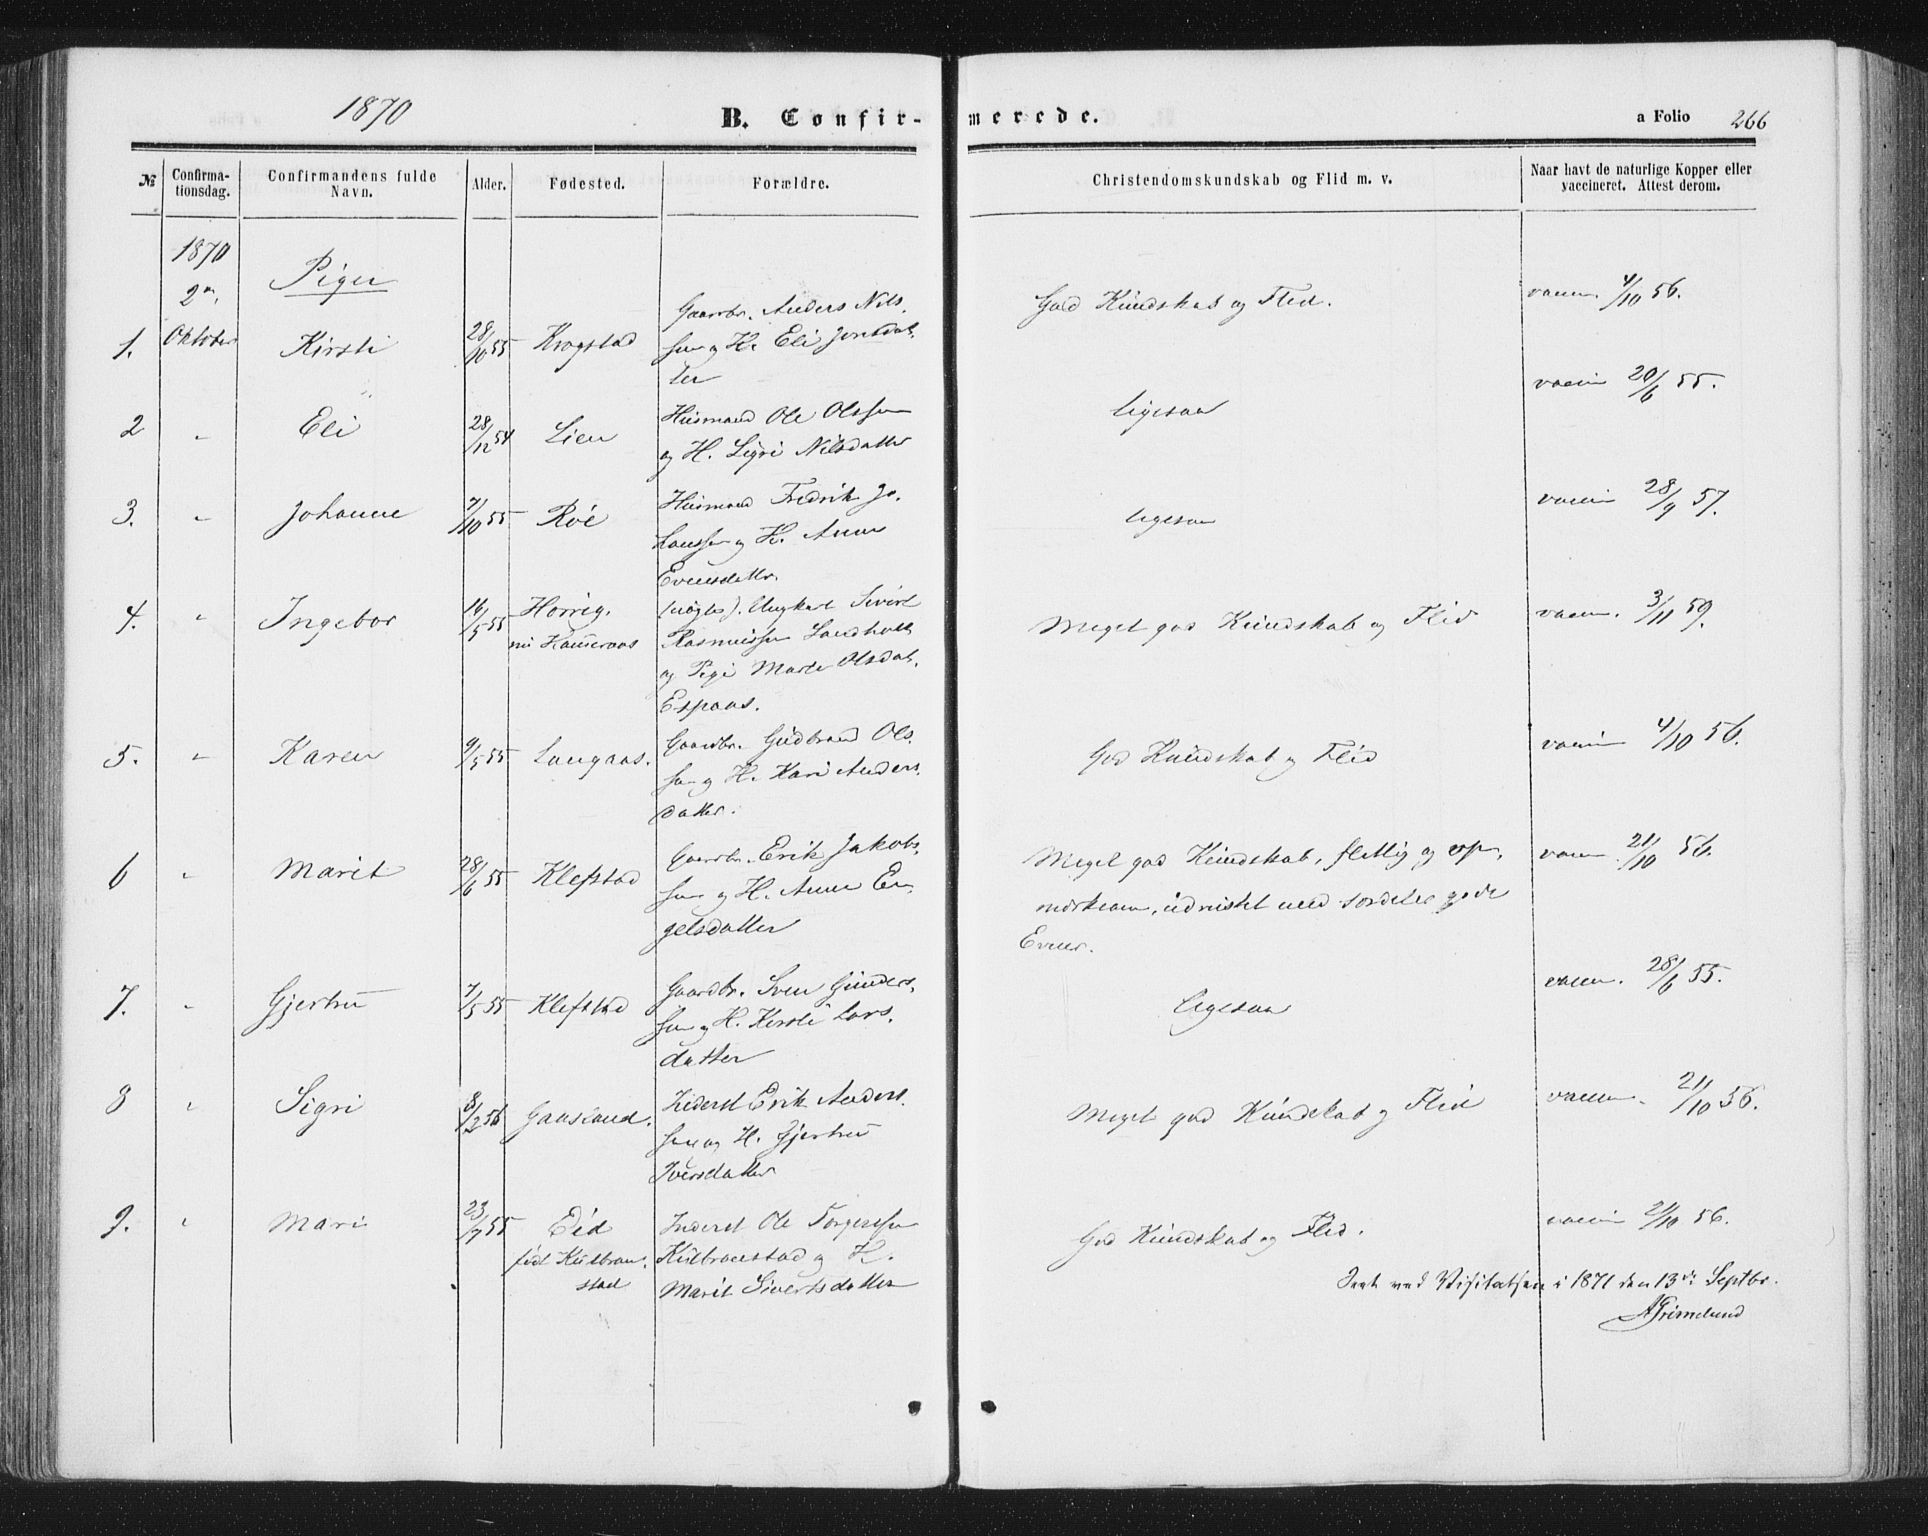 1870
B. Confirmerede.
a Folio 266
№
Confirmationsdag.
Confirmandens fulde Navn.
Alder.
Fødested.
Forældre.
Christendomskundskab og Flid m. v.
Naar havt de naturlige Kopper eller vaccineret. Attest derom.
1870
2den
Oktober
Piger
1. Kirsti 28/10 55 Krogstad
Gaardbr. Anders Nils-
sen og H. Eli Jonsdat-
ter
God Kundskab og Flid.
vaccin. 4/10 56.
2 " Eli 28/12 54 Lien
Husmand Ole Olssen
og H. Sigri Nilsdatter
ligesaa
vaccin 20/6 55.
3. " Johanne 7/10 55 Roe
Husmand Fredrik Jo-
hansen og H. Anne
Evensdattr.
ligesaa
vaccin 28/9 57.
4. " Ingebor 16/5 55 Horrig.
(uægte). Ungkarl Sivert
Rasmussen
og Pige Marte Olsdat.
Espaas.
Meget god Kundskab og Flid
vaccin. 3/11 59.
5. " Karen 9/5 55 Langaas.
Gaardbr. Gudbrand Ols-
sen og H. Kari Anders-
datter.
God Kundskab og Flid
vaccin 4/10 56.
6 " Marit 28/6 55 Klefstad
Gaardbr. Erik Jakobs-
sen og H. Anne En-
gelsdatter
Meget god Kundskab, flittig og op-
mærksom, udrustet med særdeles gode
Evner.
vaccin. 21/10 56.
7. " Gjertru 7/5 55 Klefstad
Gaardbr. Sven Gunders-
sen og H. Kirsti Lars-
datter
ligesaa
vaccin. 28/6 55.
8 " Sigri 8/2 56 Gaasland.
Inderst Erik Anders-
sen og H. Gjertru
Iversdatter
Meget god Kundskab og Flid
vaccin. 21/10 56.
9. " Mari 23/7 55 Eid
født Kulbran-
stad
Inderst Ole Torgersen
Kulbranstad og H.
Marit Sivertsdatter
God Kundskab og Flid.
vaccin 21/10 56.
Seet ved Visitatsen i 1871 den 13de Septbr.
AGrimelund